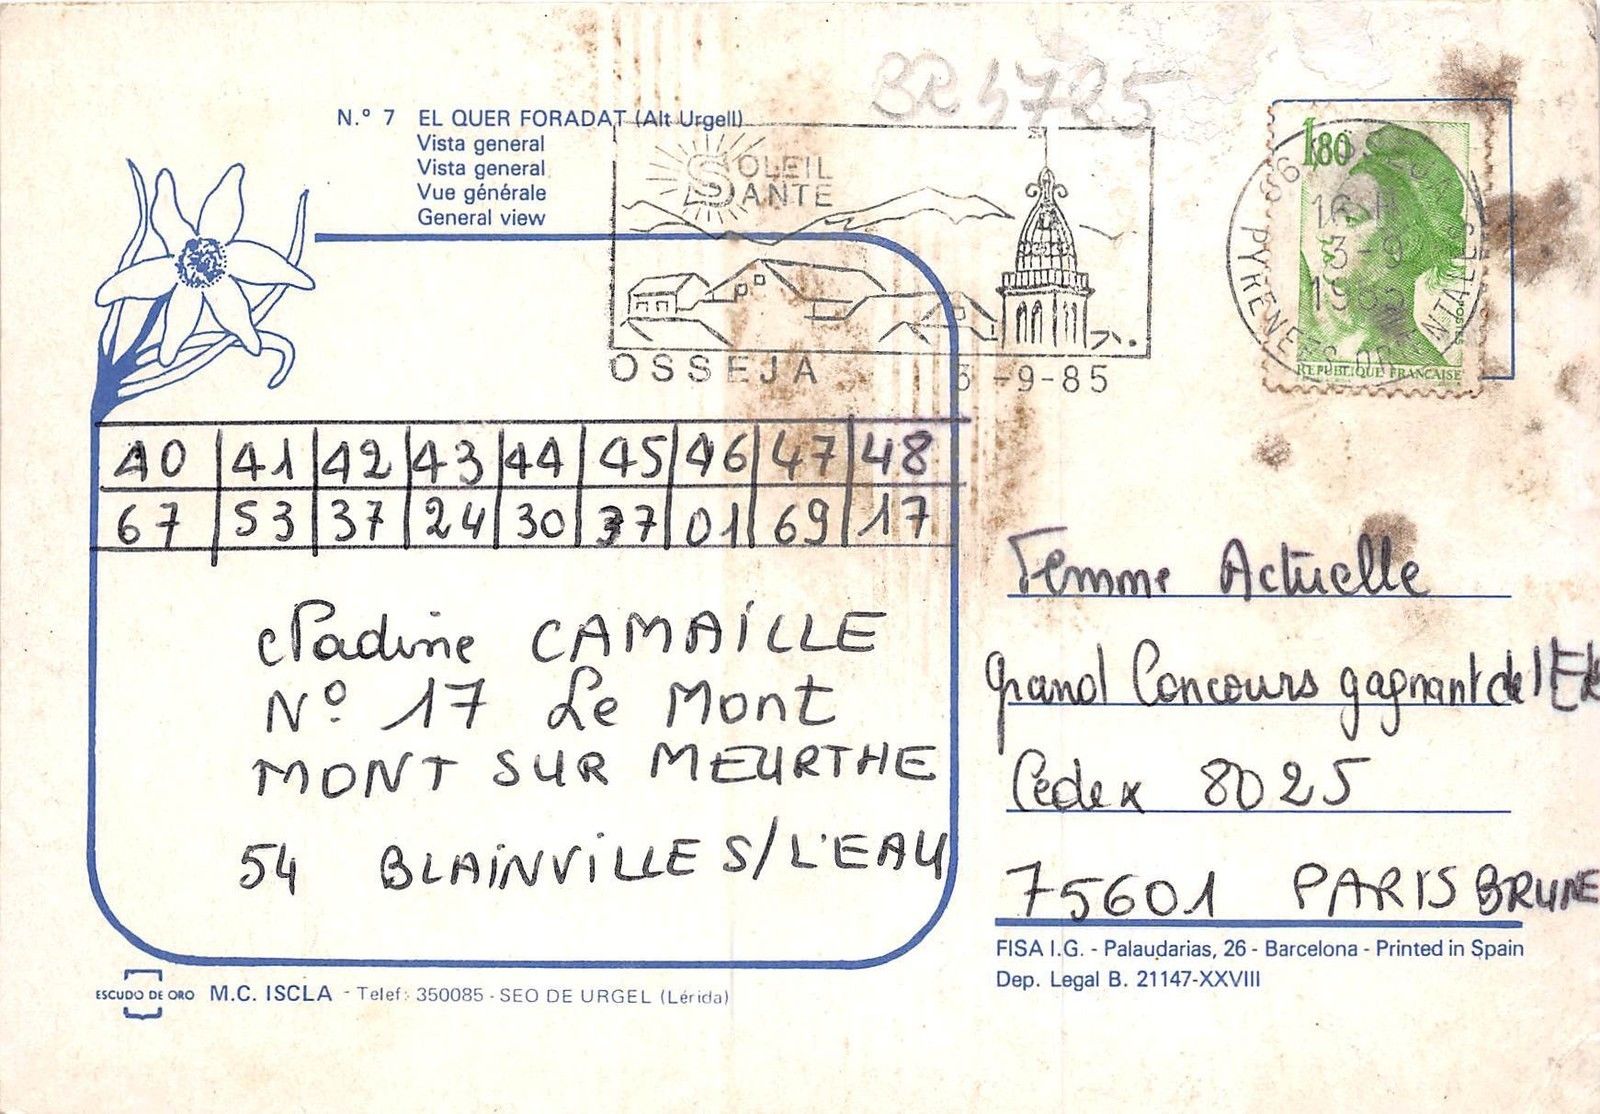 BR 4725
N.º 7 EL QUER FORADAT (Alt Urgell)
Vista general
Vista general
Vue générale
General view
SOLEIL
SANTE
OSSEJA 3-9-85
1,80
16 H
3-9
1985
PYRENEES ORIENTALES
REPUBLIQUE FRANCAISE
40 41 42 43 44 45 46 47 48
67 53 37 24 30 37 01 69 17
Nadine CAMAILLE
Nº 17 Le Mont
MONT SUR MEURTHE
54 BLAINVILLE S/L'EAU
Femme Actuelle
Grand Concours gagnant de l'Eté
Cedex 8025
75601 PARIS BRUNE
FISA I.G. - Palaudarias, 26 - Barcelona - Printed in Spain
Dep. Legal B. 21147-XXVIII
ESCUDO DE ORO M.C. ISCLA - Telef: 350085 - SEO DE URGEL (Lérida)